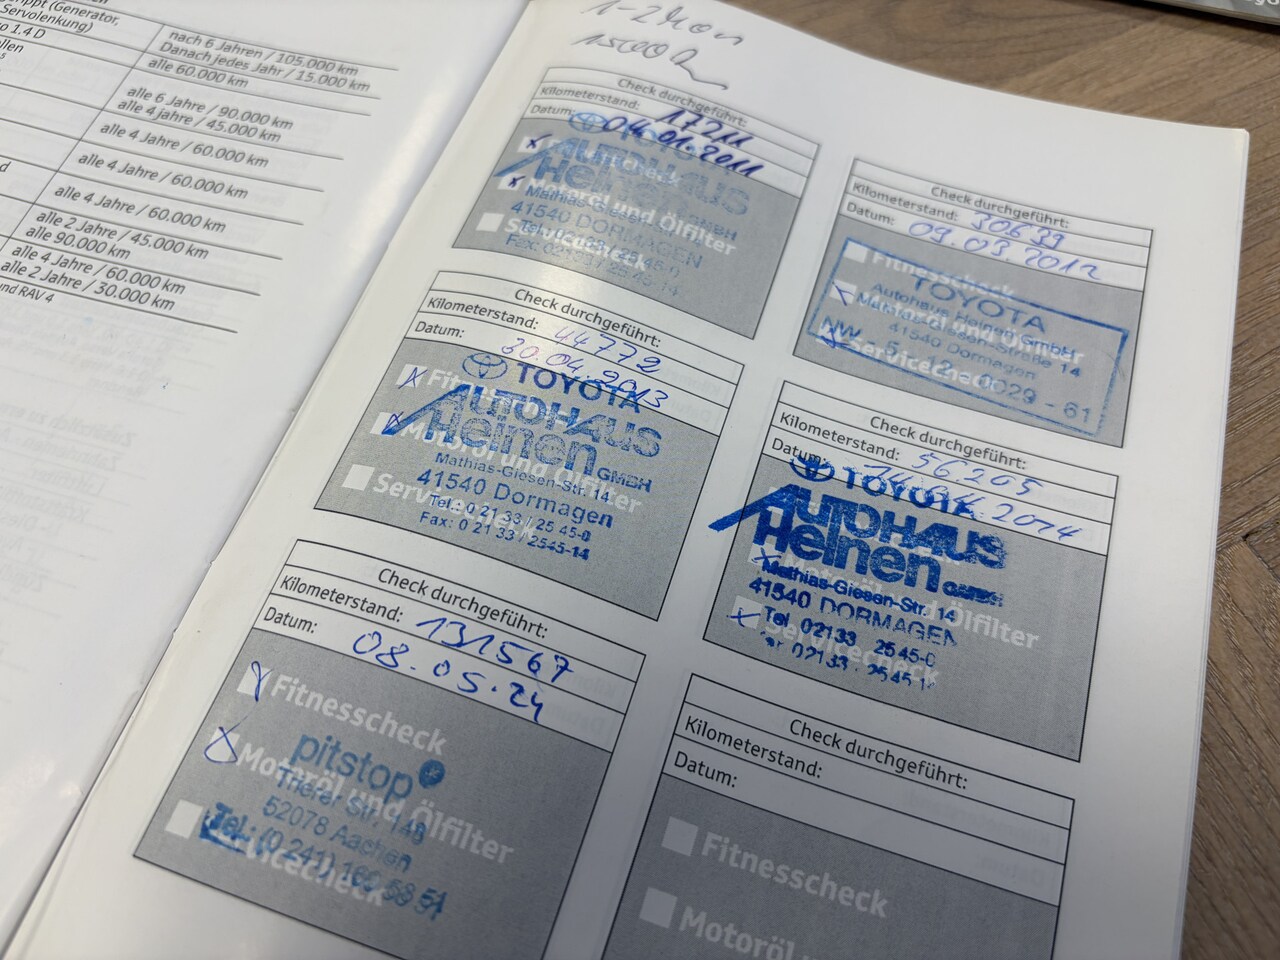 Servolenkung)
1.4 D
nach 6 Jahren / 105.000 km
Danach jedes Jahr / 15.000 km
alle 60.000 km
alle 6 Jahre / 90.000 km
alle 4 jahre / 45.000 km
alle 4 Jahre / 60.000 km
alle 4 Jahre / 60.000 km
alle 4 Jahre / 60.000 km
alle 2 Jahre / 45.000 km
alle 90.000 km
alle 4 Jahre / 60.000 km
alle 2 Jahre / 30.000 km
und RAV 4
Check durchgeführt:
Kilometerstand: 17211
Datum: 04.01.2011
TOYOTA
AUTOHAUS
Heinen GMBH
Mathias-Giesen-Str. 14
41540 DORMAGEN
Motoröl und Ölfilter
Servicecheck
Check durchgeführt:
Kilometerstand: 30639
Datum: 09.03.2012
Fitnesscheck
Motoröl und Ölfilter
Servicecheck
TOYOTA
Autohaus Heinen GmbH
Mathias-Giesen-Straße 14
41540 Dormagen
Check durchgeführt:
Kilometerstand: 44772
Datum: 30.04.2013
Fitnesscheck
Motoröl und Ölfilter
Servicecheck
TOYOTA
AUTOHAUS
Heinen GMBH
Mathias-Giesen-Str. 14
41540 Dormagen
Tel.: 0 21 33 / 25 45-0
Fax: 0 21 33 / 2545-14
Check durchgeführt:
Kilometerstand: 56.205
Datum:
TOYOTA
AUTOHAUS
Heinen GMBH
Mathias-Giesen-Str. 14
41540 DORMAGEN
Tel. 02133 2545-0
02133 2545-14
Motoröl und Ölfilter
Servicecheck
Check durchgeführt:
Kilometerstand: 131567
Datum: 08.05.24
Fitnesscheck
Motoröl und Ölfilter
Servicecheck
pitstop
Trierer Str. 148
52078 Aachen
Check durchgeführt:
Kilometerstand:
Datum:
Fitnesscheck
Motoröl